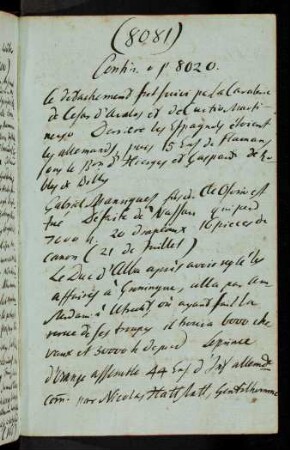 (8081)
Contin. e p. 8020.
Ce detachement fut suivi par la Cavalerie
de Cesar d'Avalos et de Curtio Marti-
nengo Derriere les Espagnols étoient
les allemands, puis 15 Ens. de Flamans
sous le Bon d'Hierges et Gaspard de Ro-
bles de Billy
Gabriel Manriques fils du Cte d'Osorio est
tué Defaite de Nassau qui perd
7000 h. 20 drapeaux 16 pieces de
canon (21 de Juillet)
Le Duc d'Alba après avoir reglé les
affaires à Groningue, alla par Am-
sterdam à Utrecht où ayant fait la
revue de ses troupes il trouva 6000 che-
vaux et 30000 h. de pied Le prince
d'Orange assembla 44 Ens. d'Inf. allemde
com. par Nicolas Hattstatt, Gentilhomme